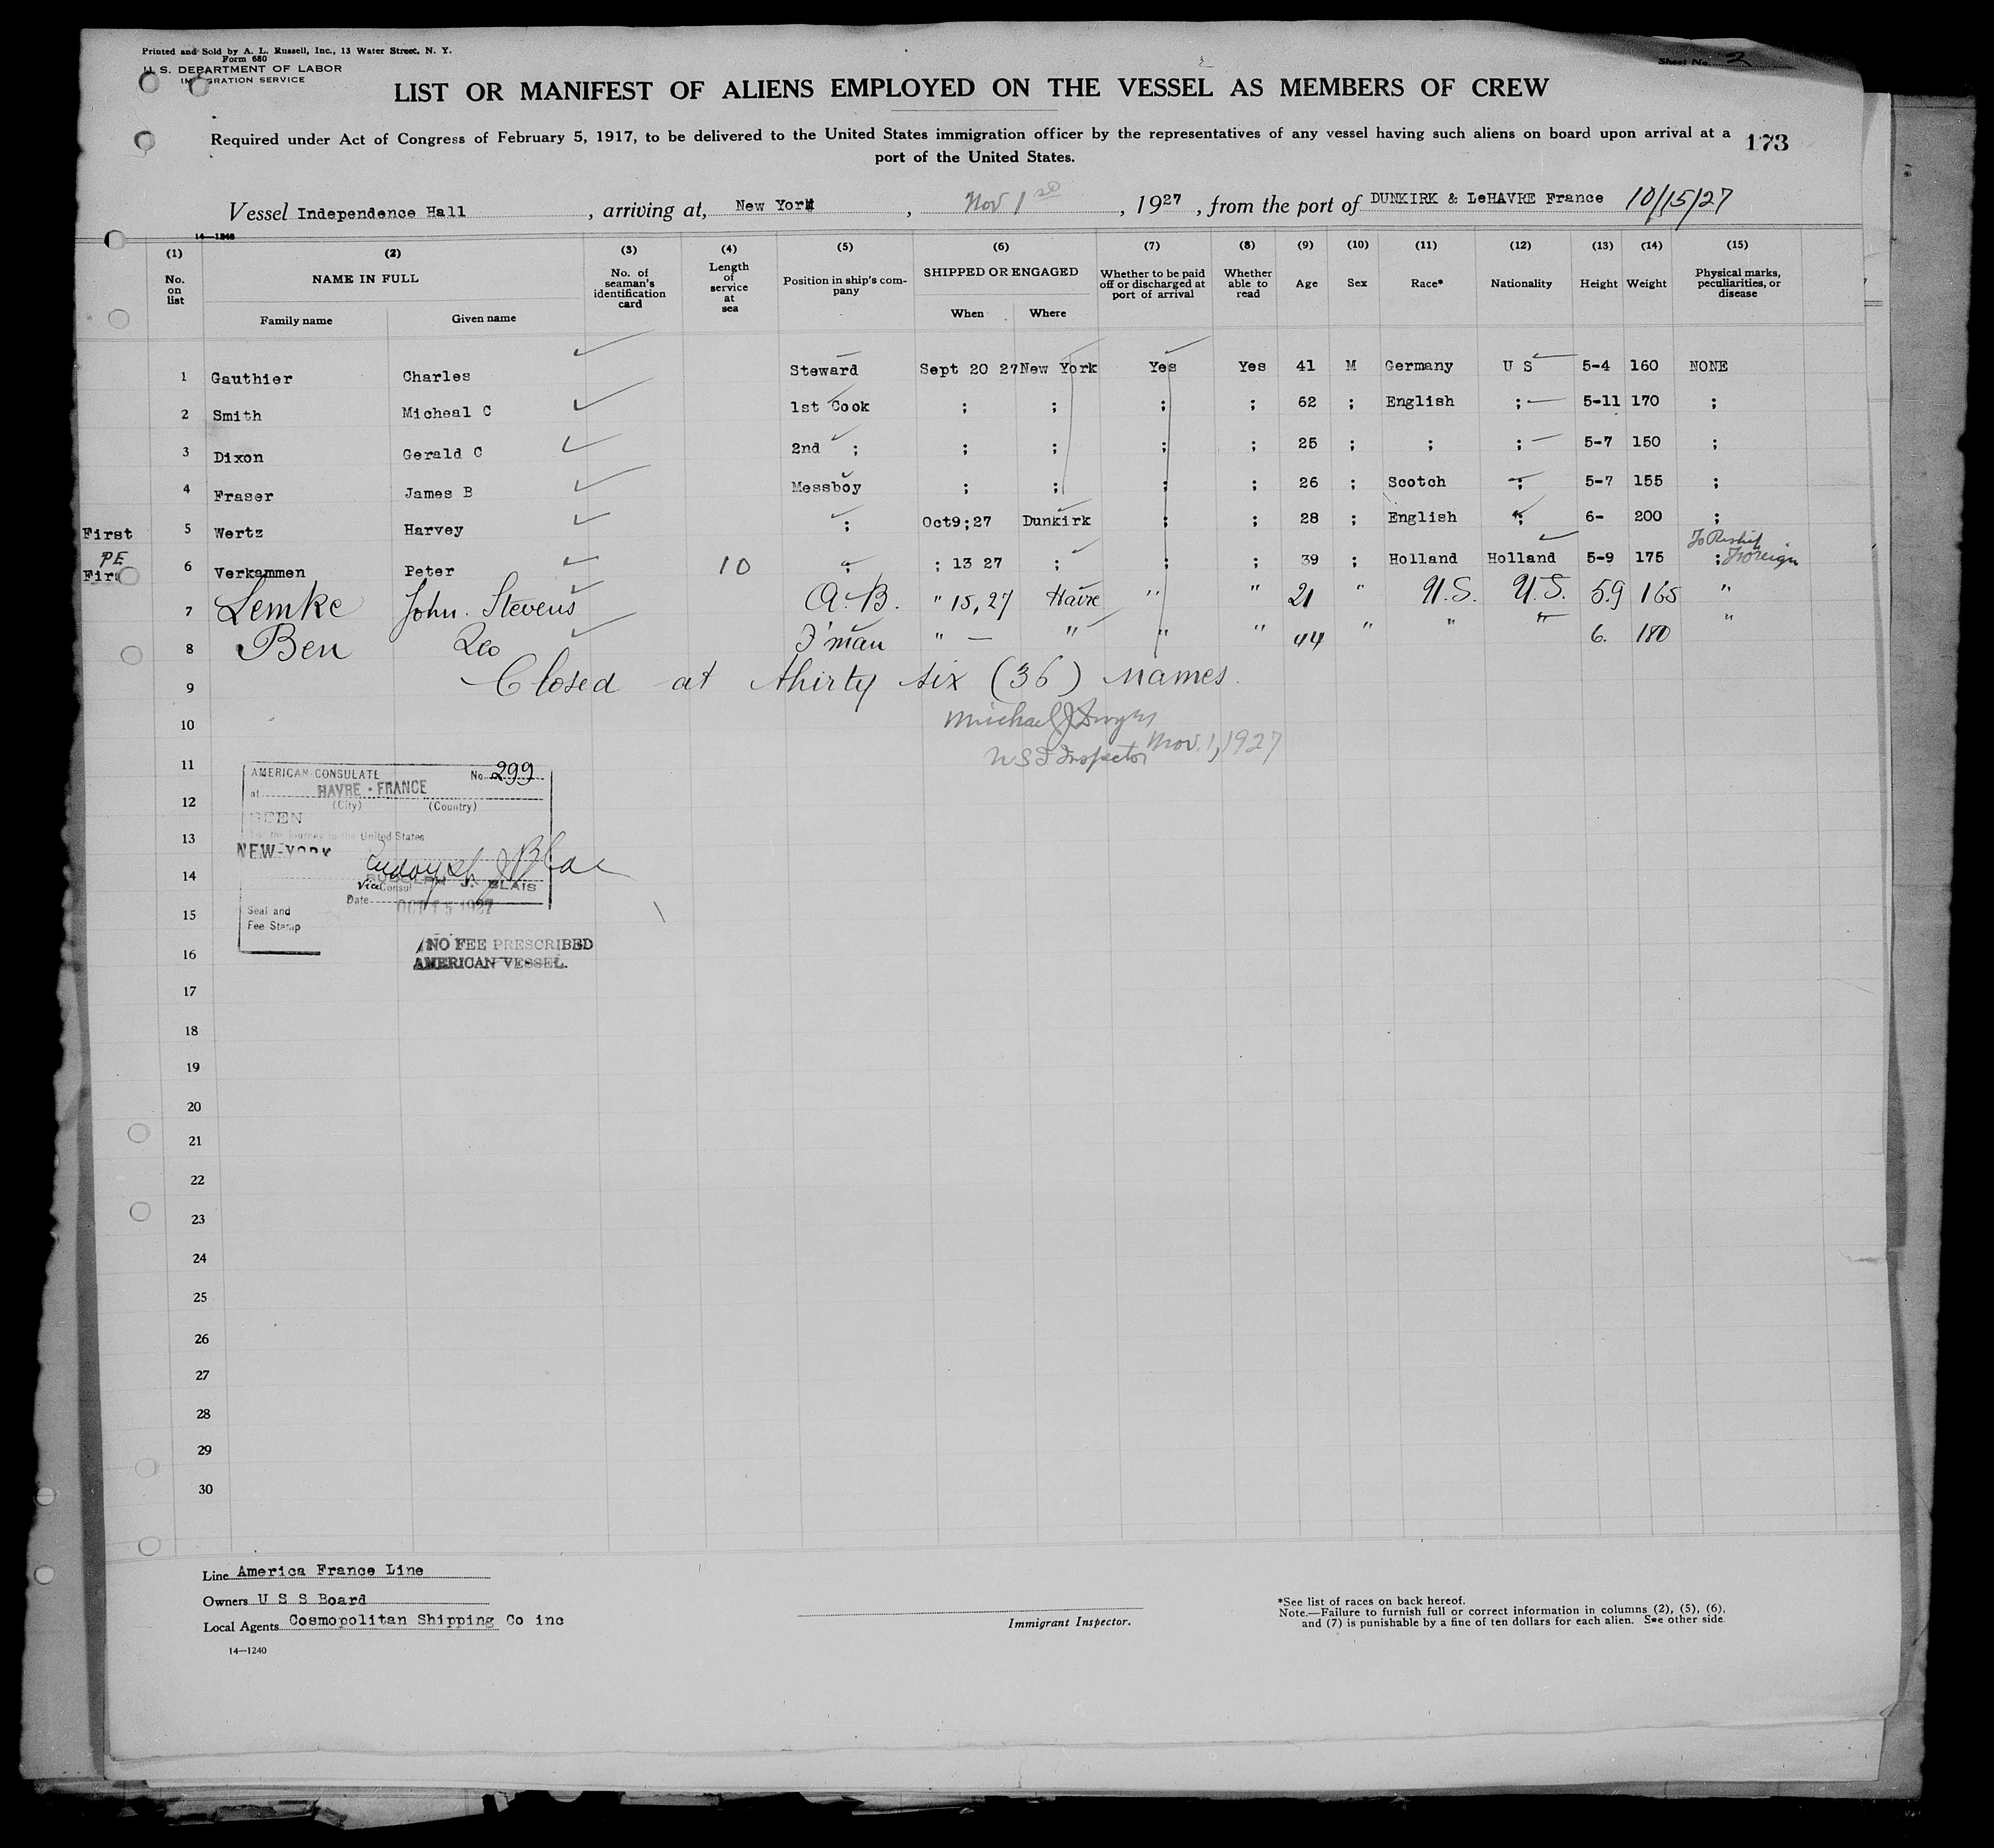 Printed and Sold by A. L. Russell, Inc., 13 Water Street, N. Y.
Form 680
U. S. DEPARTMENT OF LABOR
IMMIGRATION SERVICE
Sheet No. 2
LIST OR MANIFEST OF ALIENS EMPLOYED ON THE VESSEL AS MEMBERS OF CREW
Required under Act of Congress of February 5, 1917, to be delivered to the United States immigration officer by the representatives of any vessel having such aliens on board upon arrival at a
port of the United States.
173
Vessel Independence Hall, arriving at, New York, Nov 1st, 1927, from the port of DUNKIRK & LeHAVRE France 10/15/27
14—1240
(1) (2) (3) (4) (5) (6) (7) (8) (9) (10) (11) (12) (13) (14) (15)
No. on list NAME IN FULL Family name Given name No. of seaman's identification card Length of service at sea Position in ship's company SHIPPED OR ENGAGED When Where Whether to be paid off or discharged at port of arrival Whether able to read Age Sex Race* Nationality Height Weight Physical marks, peculiarities, or disease
1 Gauthier Charles Steward Sept 20 27 New York Yes Yes 41 M Germany U S 5-4 160 NONE
2 Smith Micheal C 1st Cook ; ; ; ; 62 ; English ; 5-11 170 ;
3 Dixon Gerald C 2nd ; ; ; ; ; 25 ; ; ; 5-7 150 ;
4 Fraser James B Messboy ; ; ; ; 26 ; Scotch ; 5-7 155 ;
First 5 Wertz Harvey ; Oct9;27 Dunkirk ; ; 28 ; English ; 6- 200 ;
PE
First 6 Verkammen Peter 10 ; ; 13 27 ; ; ; 39 ; Holland Holland 5-9 175 ; To Reship Foreign
7 Lemke John. Stevens A.B. " 15, 27 Havre " " 21 " U.S. U.S. 5.9 165 "
8 Ben Leo F'man " — " " " 44 " " " 6. 180 "
9 Closed at thirty six (36) names.
10 Michael J Dwyer
11 U S I Inspector Nov. 1, 1927
12
13
14
15
16
17
18
19
20
21
22
23
24
25
26
27
28
29
30
AMERICAN CONSULATE No. 299
at HAVRE - FRANCE
(City) (Country)
SEEN
For the journey to the United States
NEW-YORK
RUDOLPH J. BLAIS
Vice Consul
Date OCT 15 1927
Seal and
Fee Stamp
NO FEE PRESCRIBED
AMERICAN VESSEL.
Line America France Line
Owners U S S Board
Local Agents Cosmopolitan Shipping Co inc
14—1240
Immigrant Inspector.
*See list of races on back hereof.
Note.—Failure to furnish full or correct information in columns (2), (5), (6),
and (7) is punishable by a fine of ten dollars for each alien. See other side.